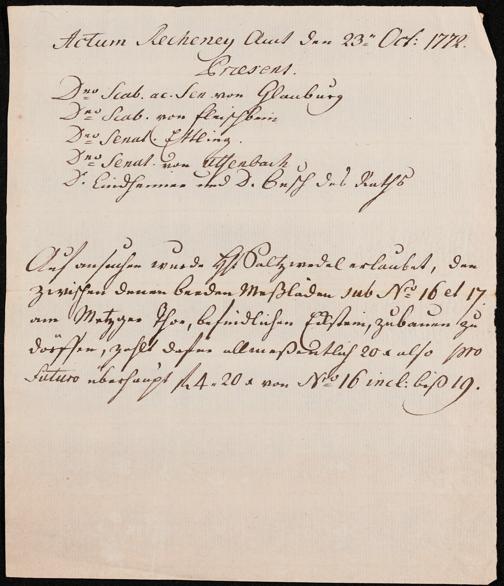 Actum Recheney Amt den 23ⁿ Oct: 1772.
Præsent.
Dno Scab. ac. Sen von Glauburg
Dno Scab. von Fleischbein
Dno Senat. Ettling.
Dno Senat. von Uffenbach
D. Lindheimer und D. Busch des Raths
Auf ansuchen wurde H. Saltzwedel erlaubet, den
zwischen denen beeden Meßläden sub No 16 et 17.
am Metzger Thor, befindlichen Eckstein, zubauen zu
dörffen, zahlt dafür allmeßentlich 20 x also pro
Futuro überhaupt f 4 „ 20 x von No 16 incl: biß 19.